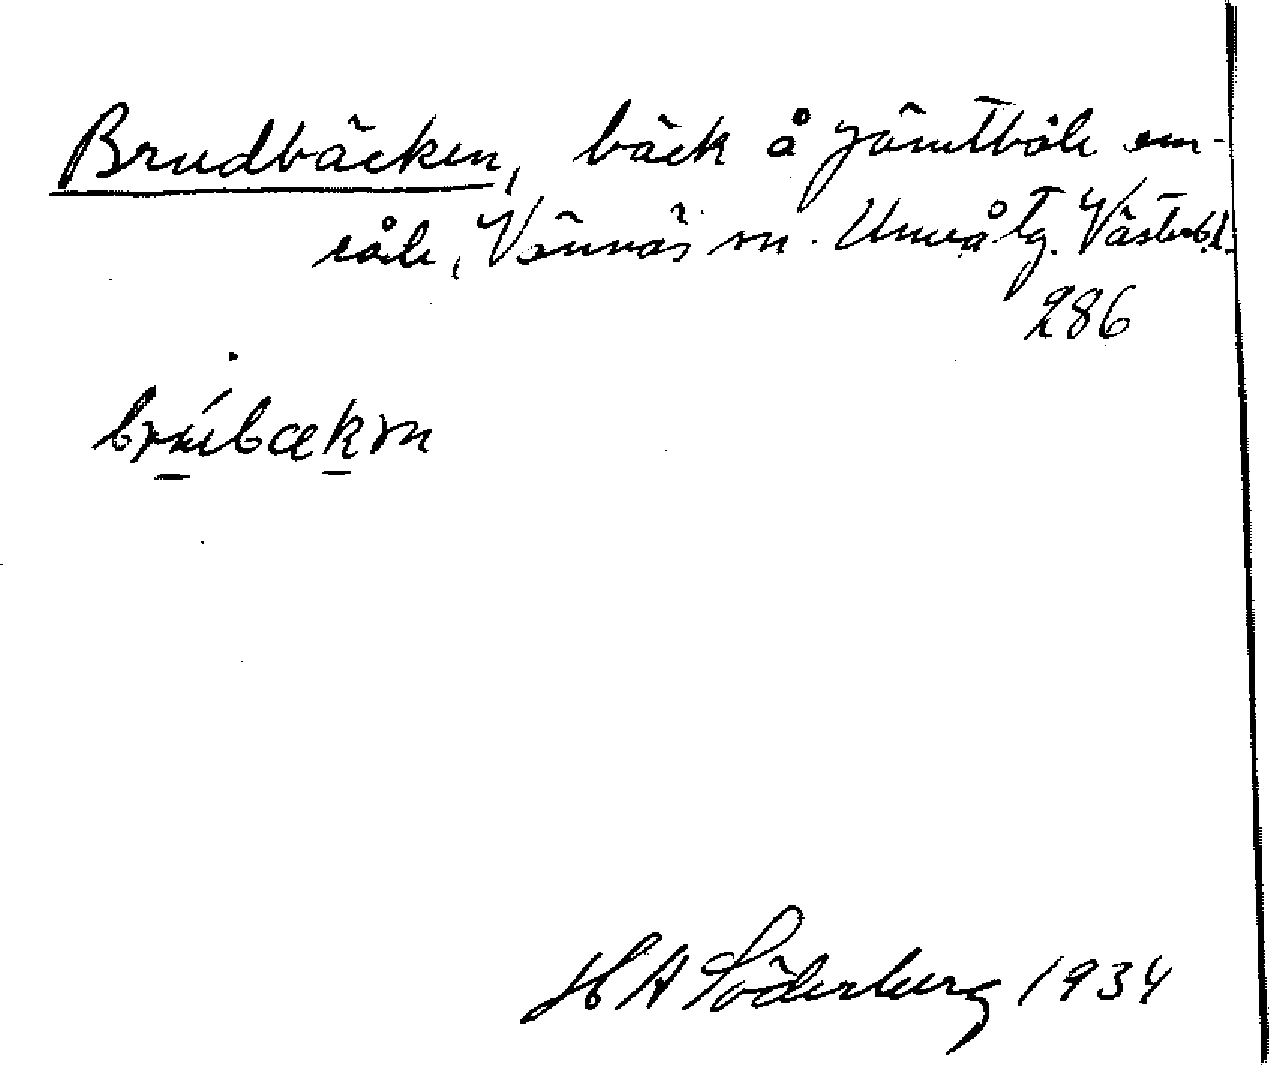 Brudbäcken, bäck å Jämtböle en-
råde, Vännäs sn. Umeå tg. Västerb.l.
286
brúbækɤn
H A Söderberg 1934